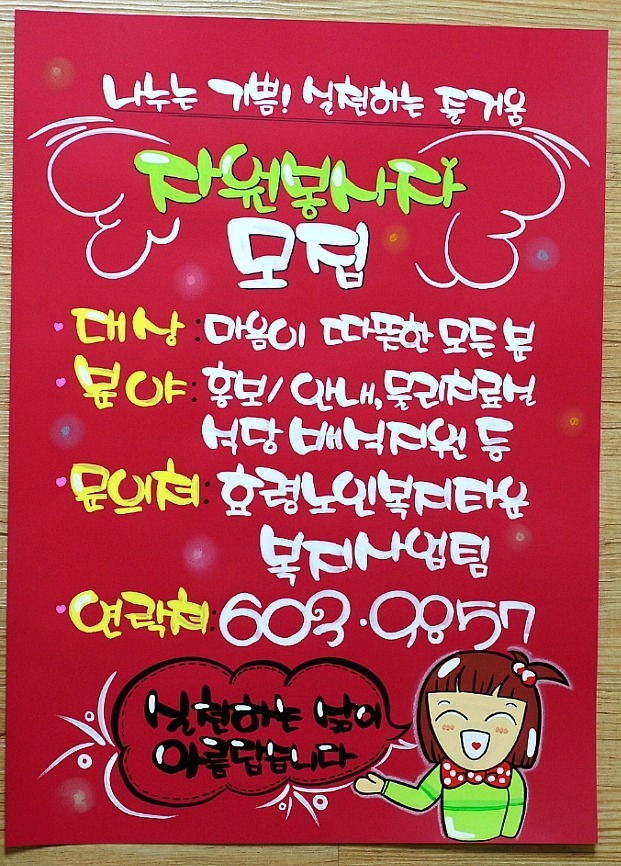 나누는 기쁨! 실천하는 즐거움
자원봉사자
모집
대상 : 마음이 따뜻한 모든 분
분야 : 홍보/안내, 물리치료실
식당 배식지원 등
문의처 : 효령노인복지타운
복지사업팀
연락처 : 603·9857
실천하는 삶이
아름답습니다